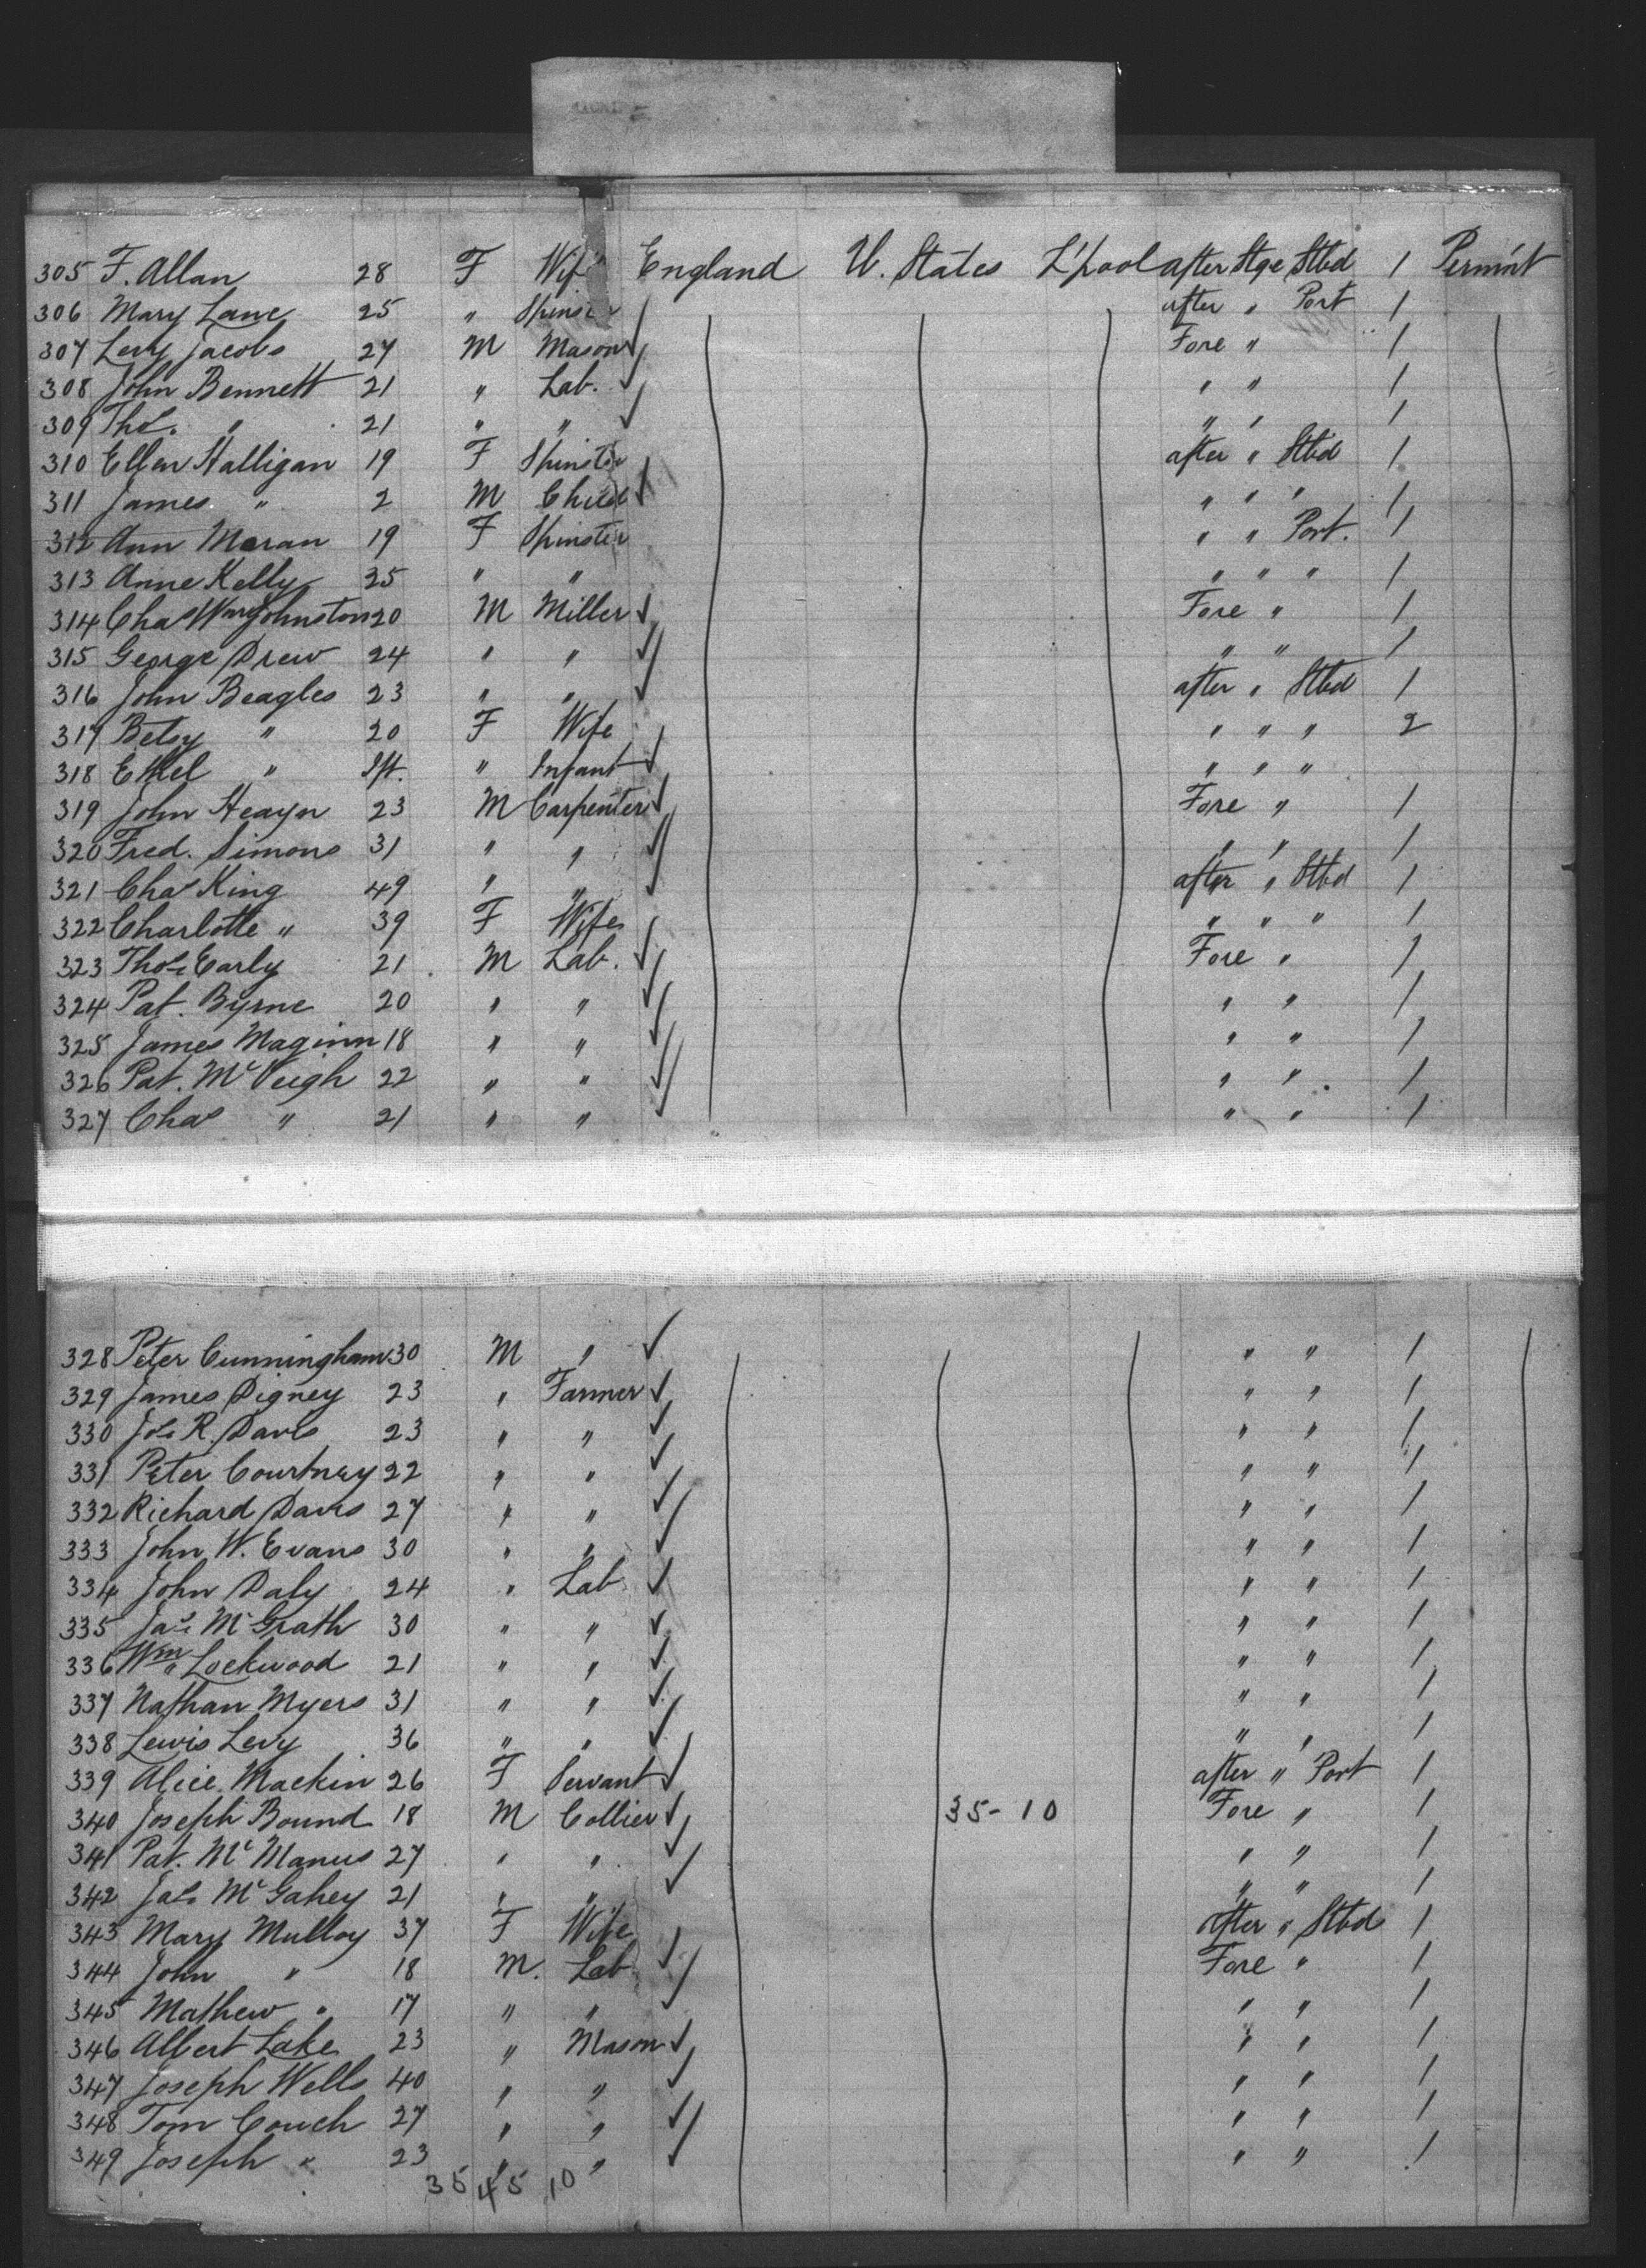 305 F. Allan 28 F Wife England U. States L'pool after Stge Stbd 1 Permn't
306 Mary Lane 25 " Spinster after " Port 1
307 Levy Jacobs 27 M Mason Fore " 1
308 John Bennett 21 " Lab. " " 1
309 Thos. " 21 " " " " 1
310 Ellen Halligan 19 F Spinster after " Stbd 1
311 James " 2 M Child " " " 1
312 Ann Moran 19 F Spinster " " Port. 1
313 Anne Kelly 25 " " " " " 1
314 Chas Wm Johnston 20 M Miller Fore " 1
315 George Drew 24 " " " " 1
316 John Beagles 23 " " after " Stbd 1
317 Betsy " 20 F Wife " " " 2
318 Ethel " Ift. " Infant " " "
319 John Heayn 23 M Carpenter Fore " 1
320 Fred. Simons 31 " " " " 1
321 Chas King 49 " " after " Stbd 1
322 Charlotte " 39 F Wife " " " 1
323 Thos. Early 21 M Lab. Fore " 1
324 Pat. Byrne 20 " " " " 1
325 James Maginn 18 " " " " 1
326 Pat. McVeigh 22 " " " " 1
327 Chas " 21 " " " " 1
328 Peter Cunningham 30 M " " " 1
329 James Digney 23 " Farmer " " 1
330 Jos. R. Davis 23 " " " " 1
331 Peter Courtney 22 " " " " 1
332 Richard Davis 27 " " " " 1
333 John W. Evans 30 " " " " 1
334 John Daly 24 " Lab " " 1
335 Jas. McGrath 30 " " " " 1
336 Wm Lockwood 21 " " " " 1
337 Nathan Myers 31 " " " " 1
338 Lewis Levy 36 " " " " 1
339 Alice Mackin 26 F Servant after " Port 1
340 Joseph Bound 18 M Collier 35-10 Fore " 1
341 Pat. McManus 27 " " " " 1
342 Jas. McGahey 21 " " " " 1
343 Mary Mulloy 37 F Wife after " Stbd 1
344 John " 18 M. Lab Fore " 1
345 Mathew " 17 " " " " 1
346 Albert Lake 23 " Mason " " 1
347 Joseph Wells 40 " " " " 1
348 Tom Couch 27 " " " " 1
349 Joseph " 23 " " " " 1
35 45 10